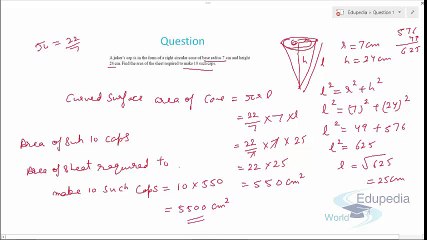 Edupedia - Question 1
π = 22/7
Question
A joker's cap is in the form of a right circular cone of base radius 7 cm and height
24 cm. Find the area of the sheet required to make 10 such caps.
r = 7cm
h = 24cm
576
49
625
l
h
Curved Surface area of Cone = πrl
= 22/7 × 7 × l
= 22/7 × 7 × 25
= 22 × 25
= 550 cm²
l² = r² + h²
l² = (7)² + (24)²
l² = 49 + 576
l² = 625
l = √625
= 25cm
Area of Such 10 caps
Area of Sheet required to
make 10 such Caps = 10 × 550
= 5500 cm²
Edupedia
World